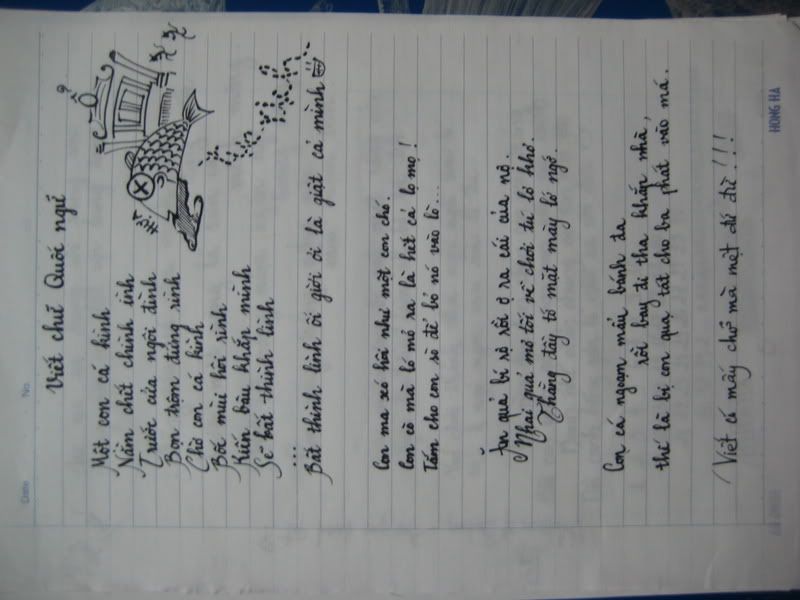 Date
No
Viết chữ Quốc ngữ
Một con cá kình
Nằm chết chình ình
Trước cửa ngôi đình
Bọn trộm đứng rình
Chờ con cá kình
Bốc mùi hôi rình
Kiến bâu khắp mình
Sẽ bất thình lình
...
Bất thình lình ối giời ơi là giật cả mình
Con ma xó hôi như một con chó.
Con cò mà ló mỏ ra là hét cả lọ mọ!
Tấm cho con sò để bỏ nó vào lò...
Ăn quả bí rợ rồi ợ ra cái của nợ.
Nhái quá mở tối về chơi tú lơ khơ.
Thằng đầy tớ mặt mày lớ ngớ.
Con cá ngoạm mẩu bánh đa
rồi bay đi tha khắp nhà,
thế là bị con quạ tát cho ba phát vào má.
Viết có mấy chữ mà mệt đứ đừ!!!
HONG HA